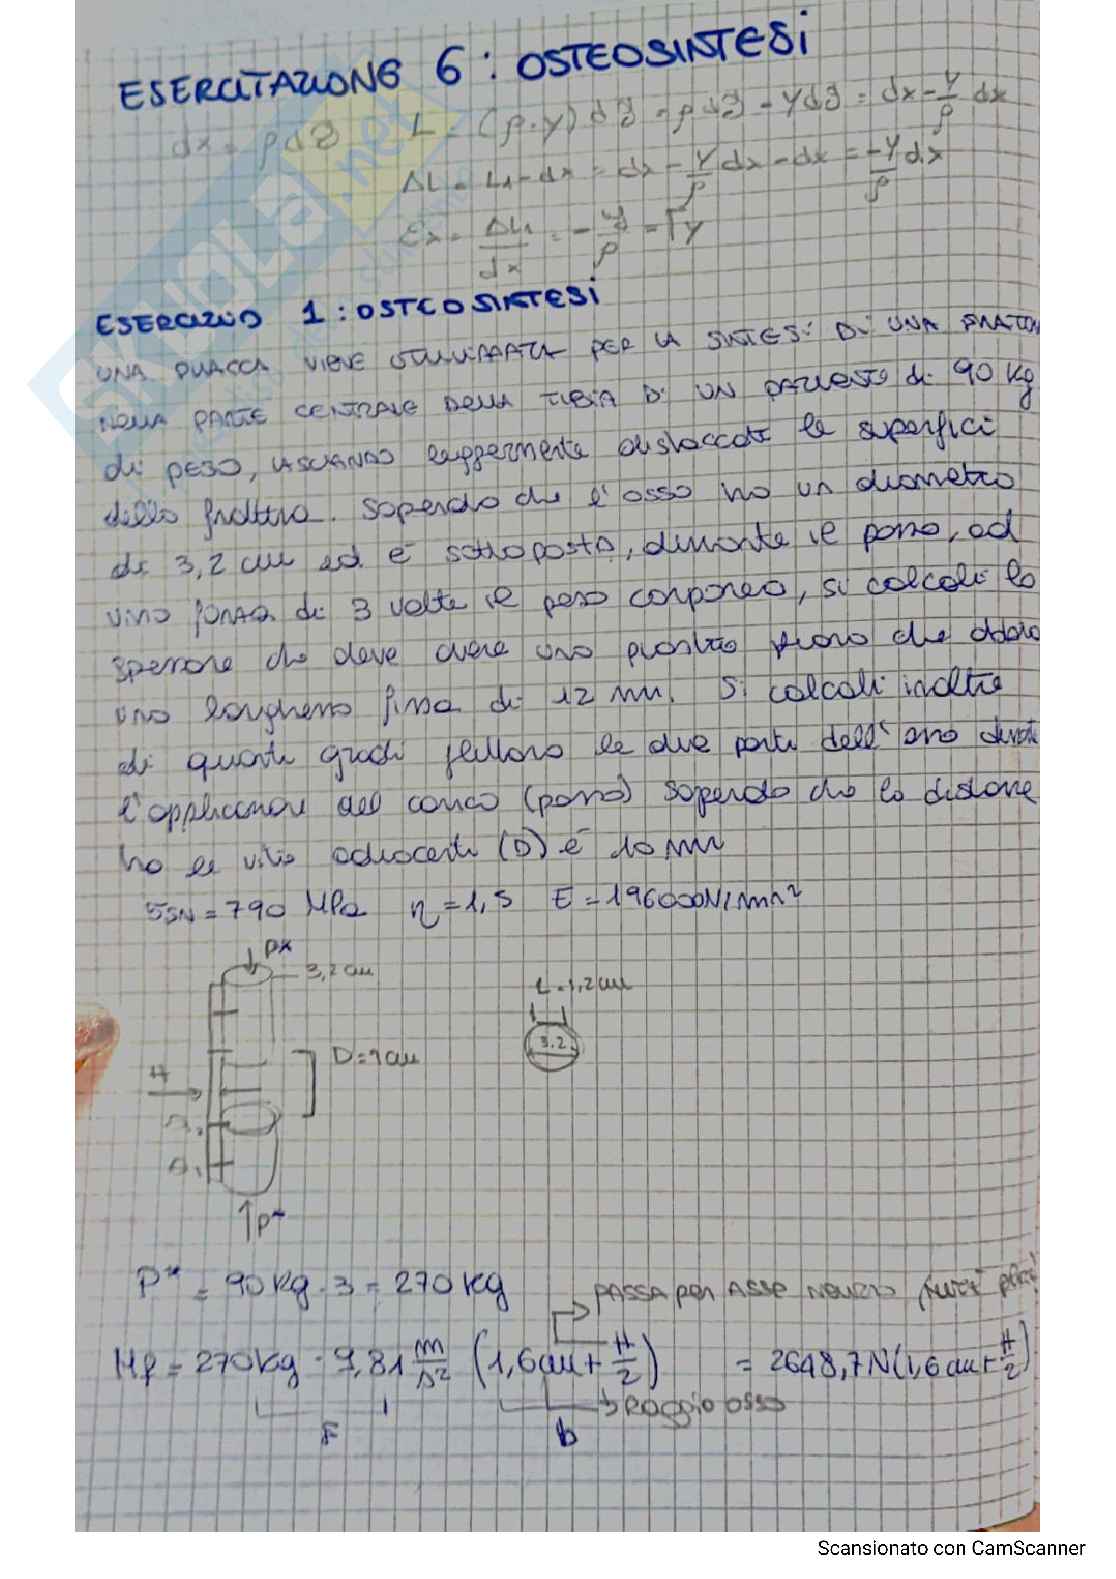 ESERCITAZIONE 6 : OSTEOSINTESI
dx = ρdϑ L = (ρ-y)dϑ = ρdϑ - ydϑ = dx - y/ρ dx
ΔL = L1 - dx = dx - y/ρ dx - dx = -y/ρ dx
εx = ΔL1/dx = -y/ρ = Γy
ESERCIZIO 1 : OSTEOSINTESI
UNA PLACCA VIENE UTILIZZATA PER LA SINTESI DI UNA FRATTURA
NELLA PARTE CENTRALE DELLA TIBIA DI UN PAZIENTE di 90 Kg
di PESO, LASCIANDO leggermente distaccate le superfici
della frattura. Sapendo che l'osso ha un diametro
di 3,2 cm ed è sottoposto, durante il passo, ad
una forza di 3 volte il peso corporeo, si calcoli lo
spessore che deve avere una piastra piana che abbia
una larghezza fissa di 12 mm. Si calcoli inoltre
di quanti gradi flettono le due parti dell'osso durante
l'applicazione del carico (passo) sapendo che la distanza
tra le viti adiacenti (D) è 10 mm
σSN = 790 MPa η = 1,5 E = 196000 N/mm²
P*
3,2 cm
L = 1,2 cm
3.2
D = 1 cm
H
P*
P* = 90 Kg · 3 = 270 Kg
PASSA PER ASSE NEUTRO
Mf = 270 Kg · 9,81 m/s² (1,6 cm + H/2) = 2648,7 N (1,6 cm + H/2)
Raggio osso
F b
Scansionato con CamScanner